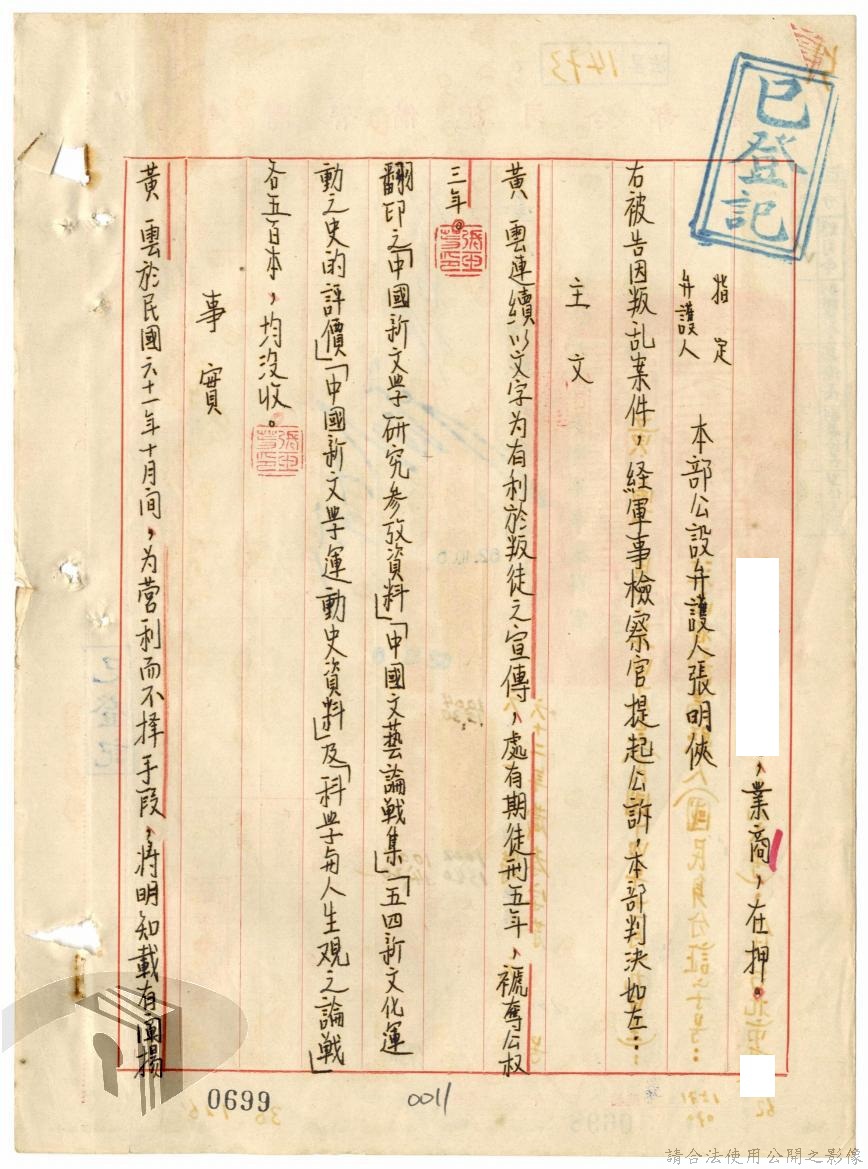 已登記
，業商，在押。
指定
弁護人
本部公設弁護人張明俠
右被告因叛乱案件，経軍事檢察官提起公訴，本部判決如左：
主文
黃雲連續以文字为有利於叛徒之宣傳，處有期徒刑五年，褫奪公权
三年。
翻印之「中國新文學研究参攷資料」「中國文藝論戰集」「五四新文化運
動之史的評價」「中國新文學運動史資料」及「科学与人生观之論戰」
各五百本，均沒收。
事實
黃雲於民國六十一年十月间，为营利而不择手段，將明知載有闡揚
0699
0011
請合法使用公開之影像